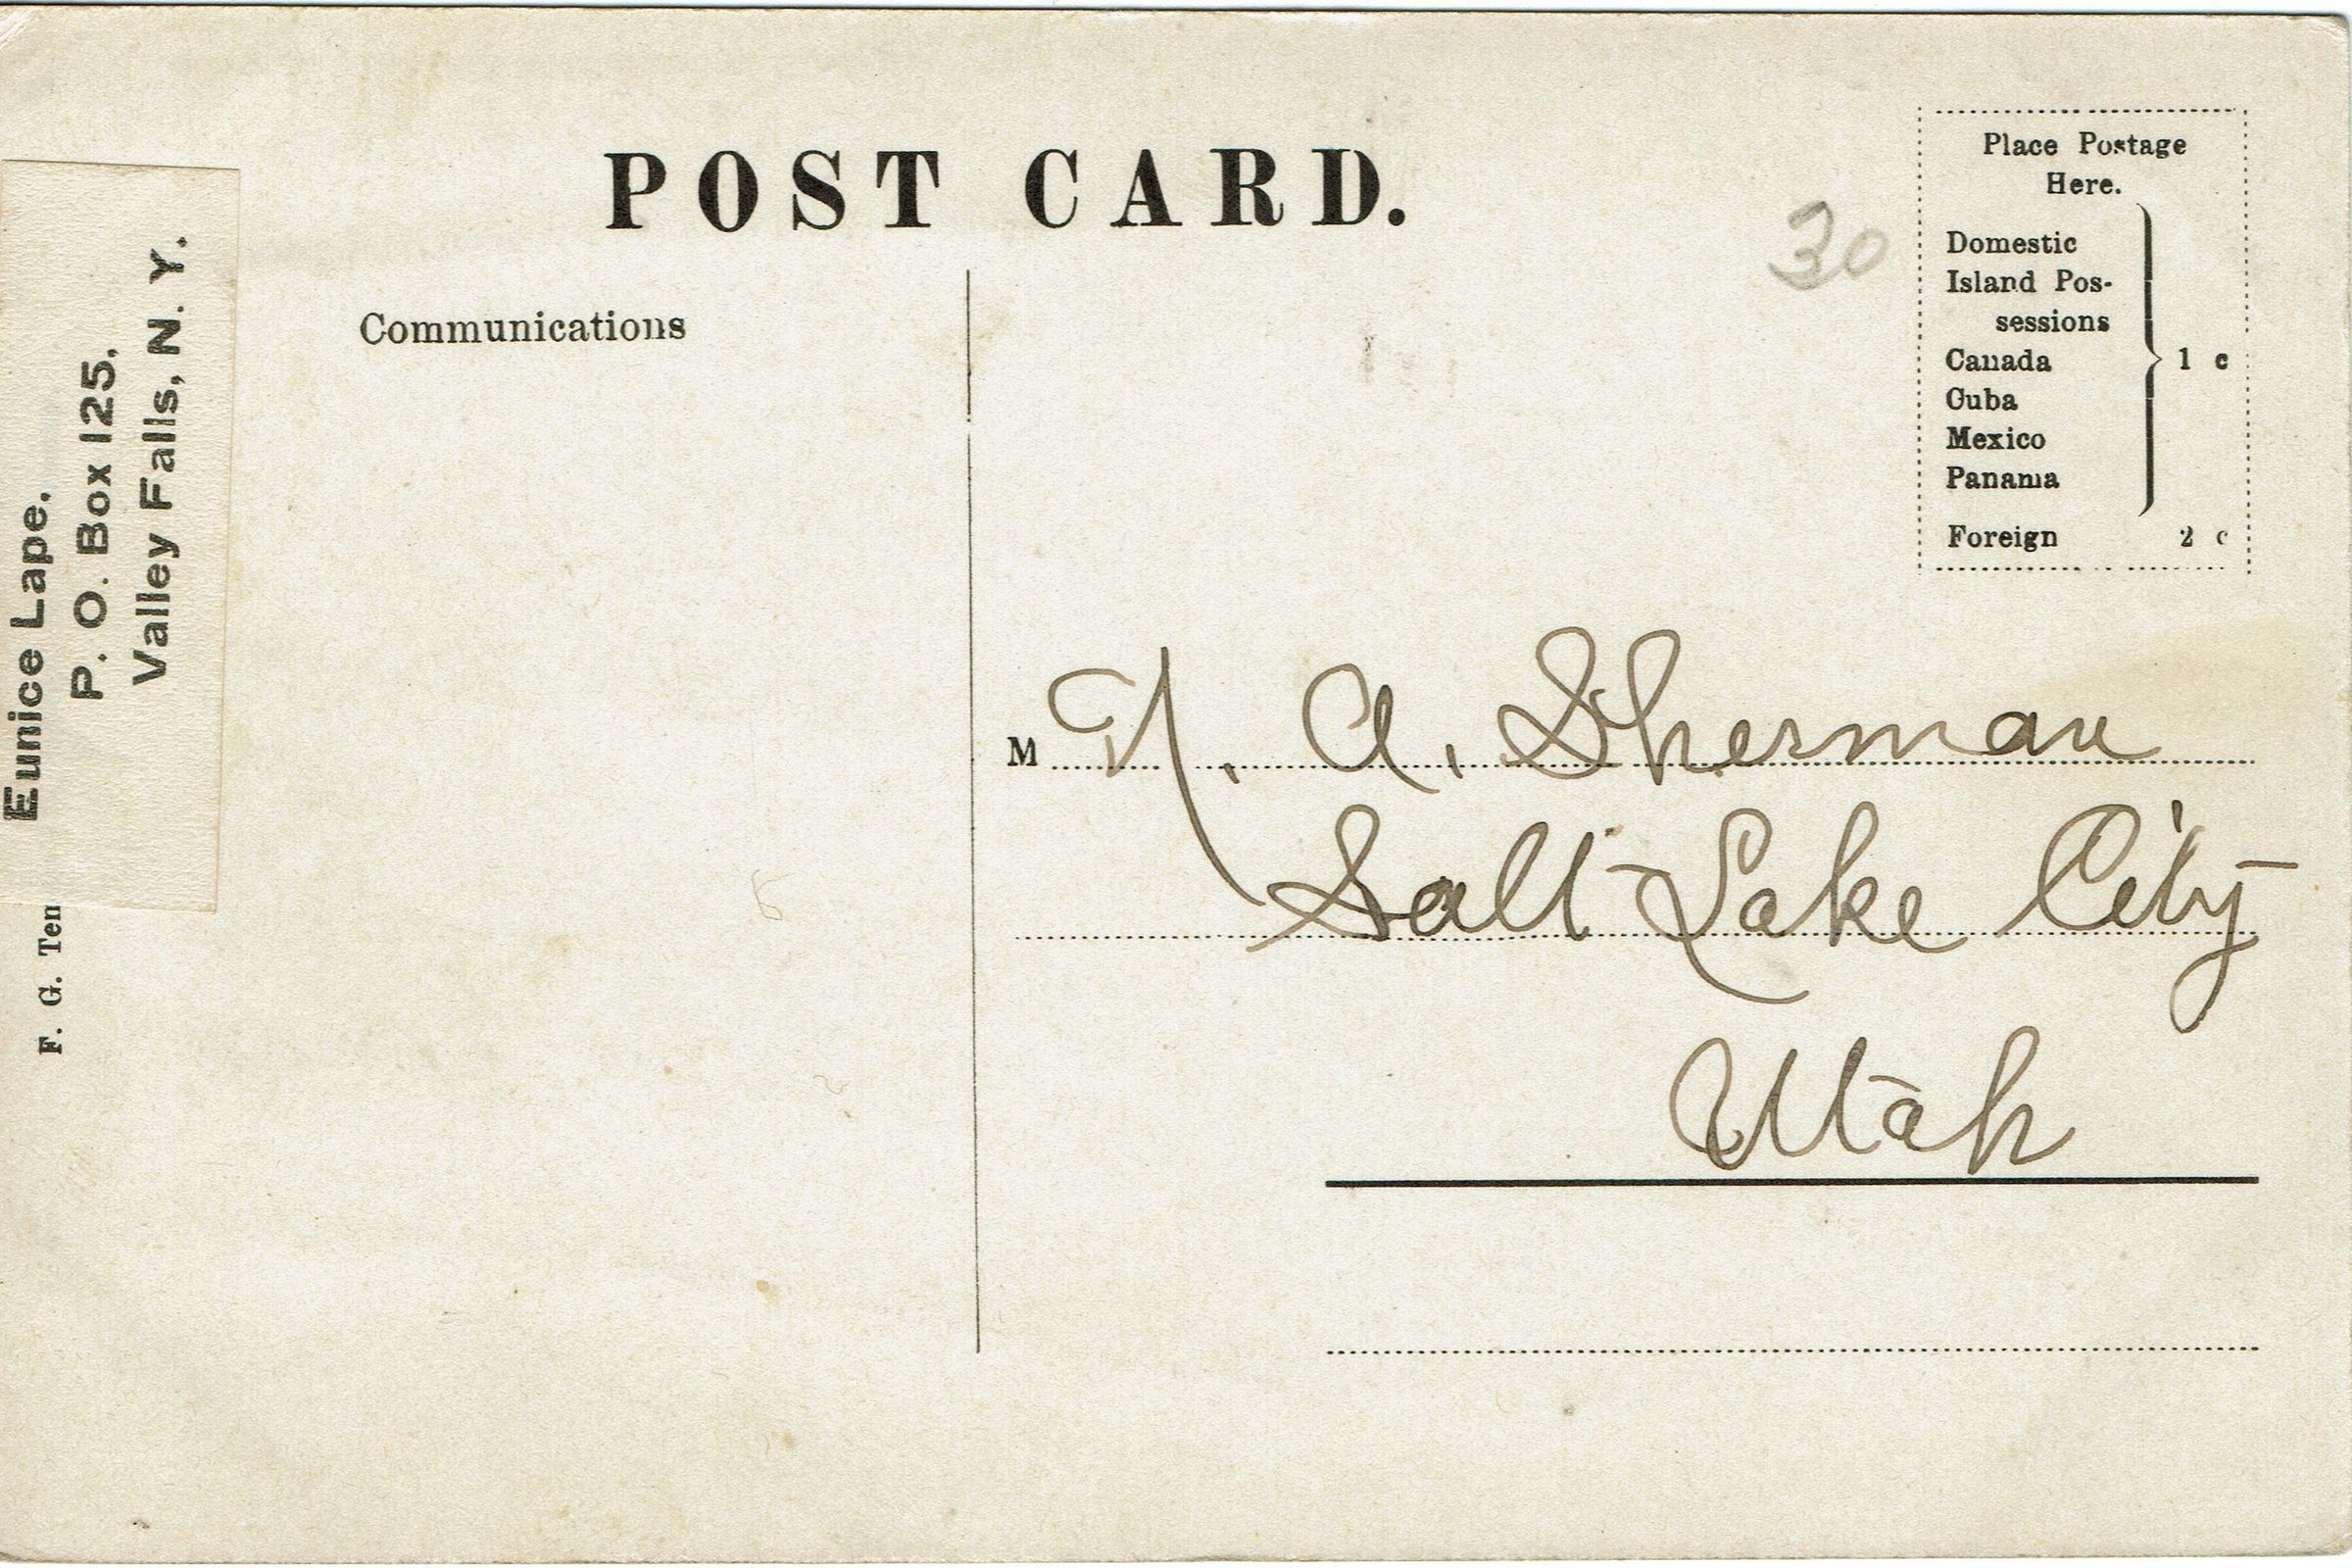 POST CARD.
Communications
30
Place Postage
Here.
Domestic
Island Pos-
sessions
Canada
Cuba
Mexico
Panama
1 c
Foreign 2 c
Eunice Lape,
P. O. Box 125,
Valley Falls, N. Y.
F. G. Ten
M A. Sherman
Salt Lake City
Utah